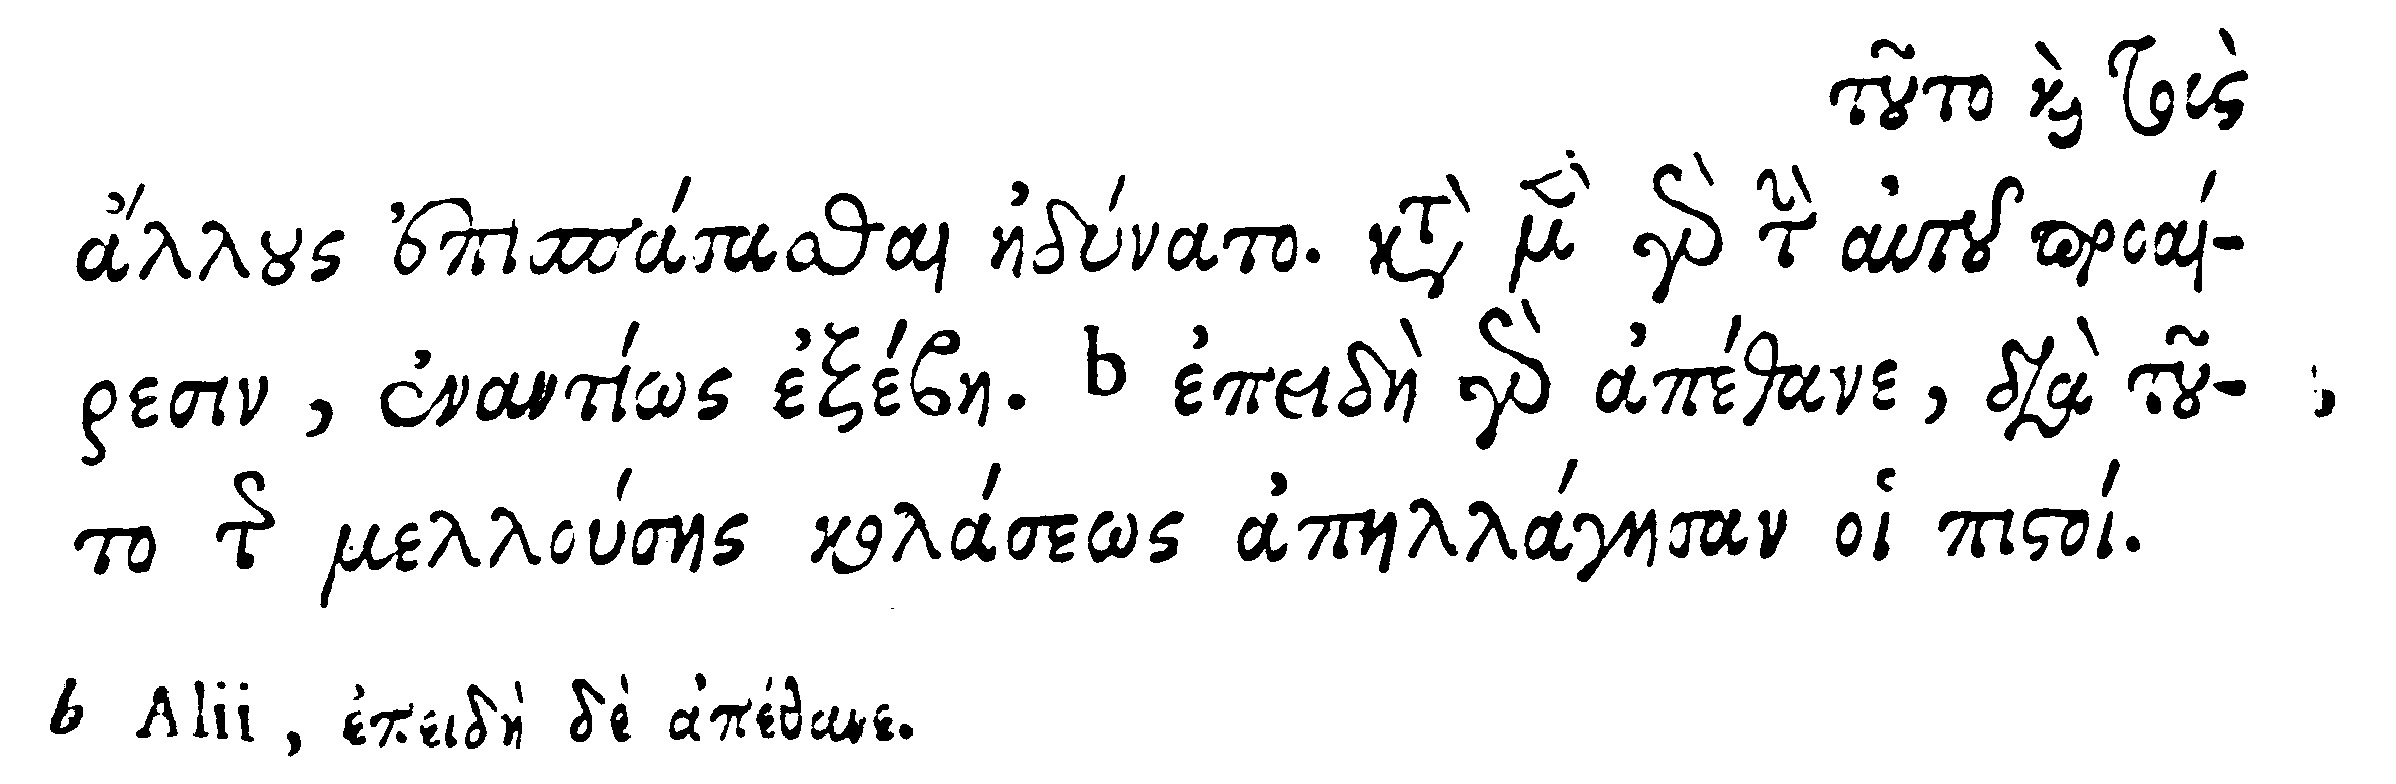 τοῦτο καὶ τοὺς
ἄλλους ἐπισπάσασθαι ἠδύνατο. κατὰ μὲν γὰρ τὴν αὐτοῦ προαί-
ρεσιν, ἐναντίως ἐξέβη. b ἐπειδὴ γὰρ ἀπέθανε, διὰ τοῦ-
το τῆς μελλούσης κολάσεως ἀπηλλάγησαν οἱ πιστοί.
b Alii, ἐπειδὴ δὲ ἀπέθανε.